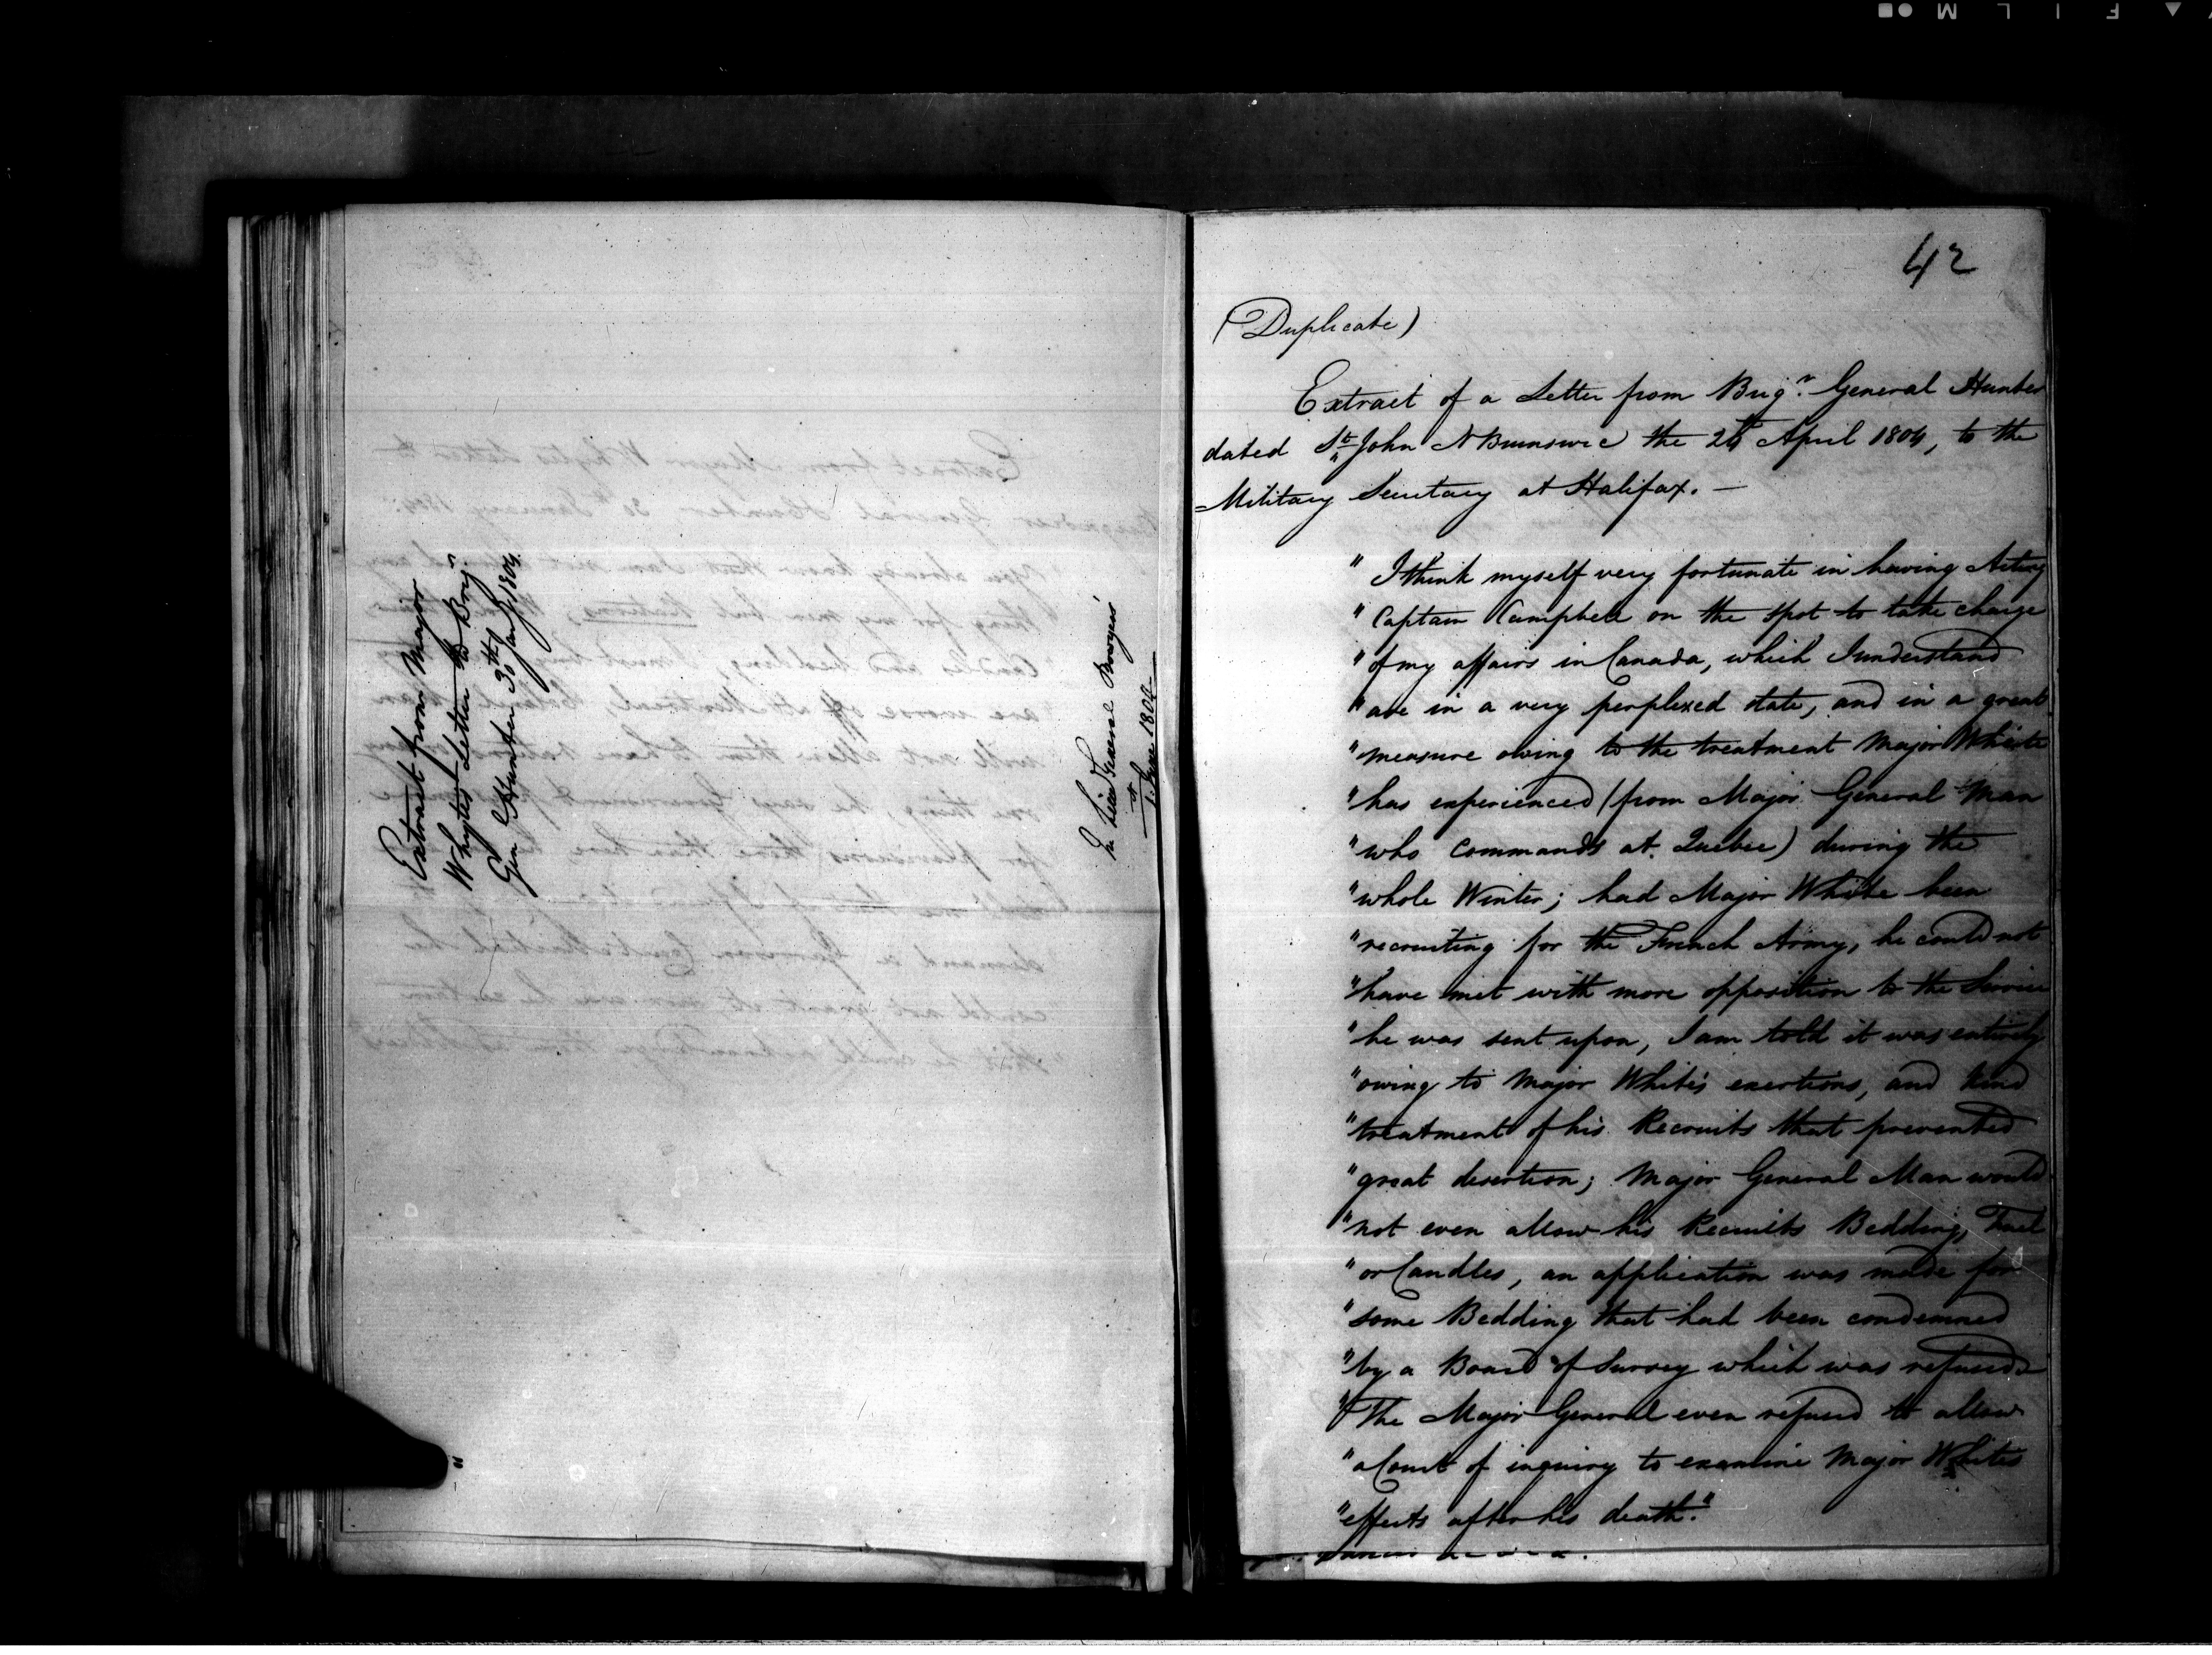 Extract from Major
Whytes Letter to Brigr
Genl Hunter 30th Jany 1804.
In Lieut General Bowyers'
of
1. June 1804
42
(Duplicate)
Extract of a Letter from Brigr. General Hunter
dated St. John N Brunswic the 24 April 1804, to the
Military Secretary at Halifax. —
" I think myself very fortunate in having Acting
" Captain Campbell on the spot to take charge
" of my affairs in Canada, which I understand
" are in a very perplexed state, and in a great
" measure owing to the treatment Major White
" has experienced (from Major General Man
" who Commands at Quebec) during the
" whole Winter; had Major White been
" recruiting for the French Army, he could not
" have met with more opposition to the Service
" he was sent upon, I am told it was entirely
" owing to Major White's exertions, and kind
" treatment of his Recruits that prevented
" great desertion; Major General Man would
" not even allow his Recruits Bedding, Fuel
" or Candles, an application was made for
" some Bedding that had been condemned
" by a Board of Survey which was refused
" The Major General even refused to allow
" a Court of inquiry to examine Major Whites
" effects after his death."